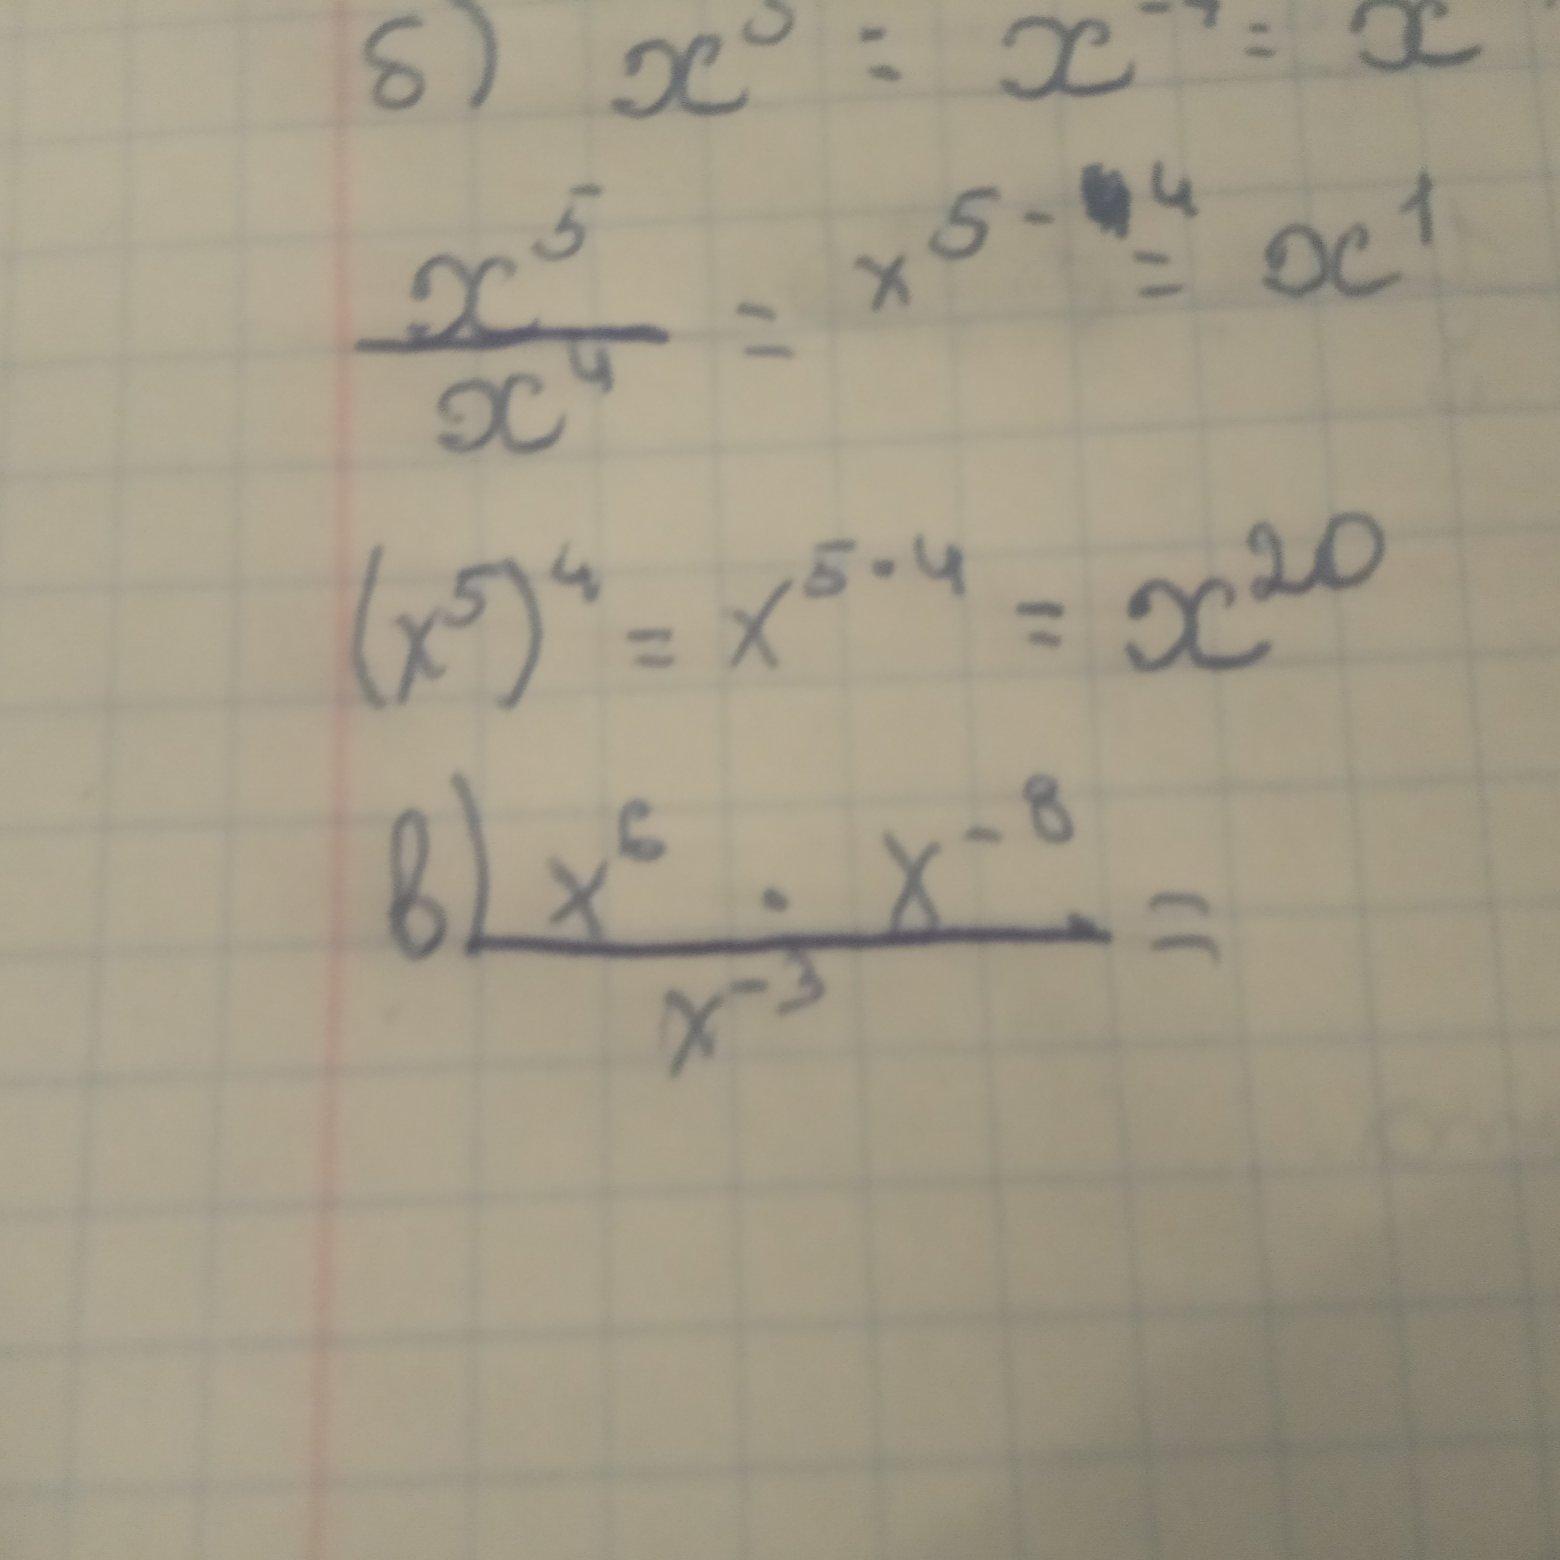 б) x : x = x
x⁵/x⁴ = x⁵⁻⁴ = x¹
(x⁵)⁴ = x⁵·⁴ = x²⁰
в) x⁶ · x⁻⁸ / x⁻³ =